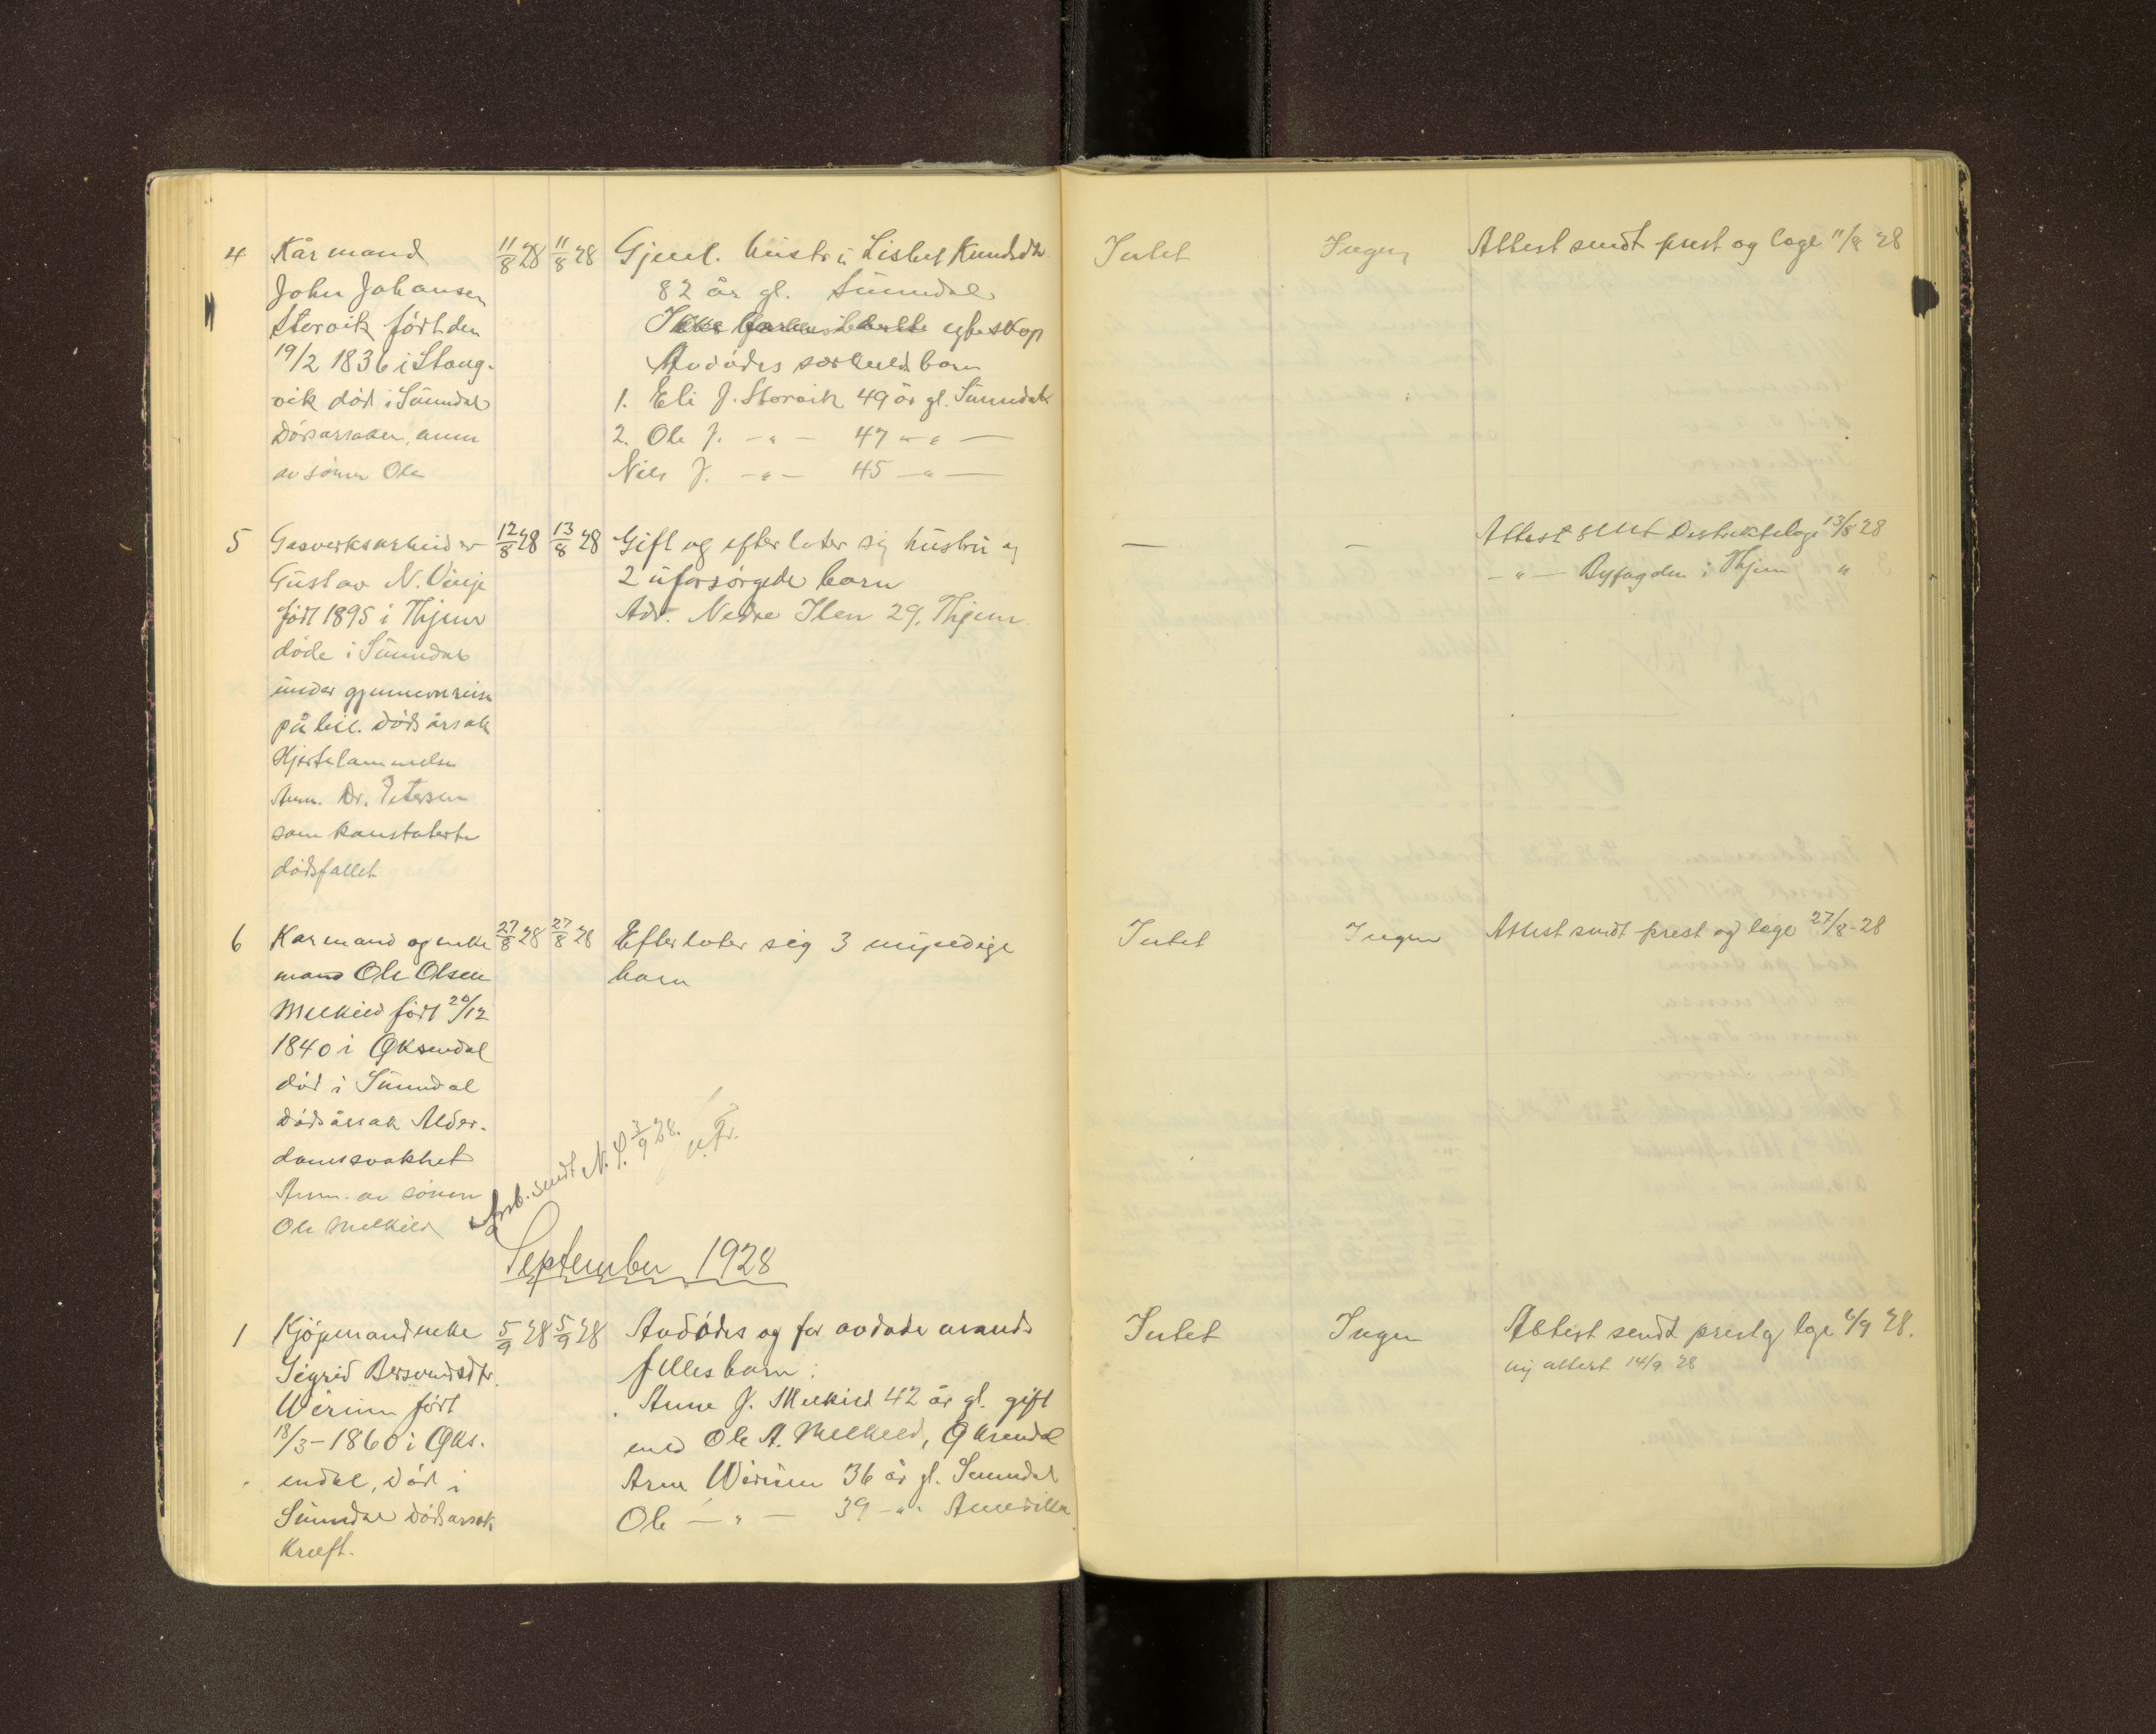 4 Kårmand 11/8 28 11/8 28 Gjenl. hustru Lisbet Knudsdtr. Intet Ingen Attest sendt prest og læge 11/8 28
John Johansen 82 år gl. Sunndal
Storvik født den egteskap
19/2 1836 i Stang- Avdødes særkuldbarn
vik død i Sunndal 1. Eli J. Storvik 49 år gl. Sunndal
Dødsårsaken, anm 2. Ole J. -"- 47 -"-
av sönn Ole Nils J. -"- 45 -"-
5 Gasverksarbeider 12/8 28 13/8 28 Gift og efterlater sig hustru og — — Attest sendt Distriktslæge 13/8 28
Gustav N. Vinje 2 uforsørgede barn -"- Byfogden i Thjem "
født 1895 i Thjem Adr. Nedre Ilen 29, Thjem
døde i Sunndal
under gjennemreise
på bil. Dødsårsak
Hjertelammelse
Anm. Dr. Petersen
som konstaterte
dødsfallet
6 Kårmand og enke 27/8 28 27/8 28 Efterlater sig 3 myndige Intet Ingen Attest sendt prest og læge 27/8-28
mand Ole Olsen barn
Melkild født 20/12
1840 i Øksendal
død i Sunndal
Dødsårsak Alder-
domssvakhet
Anm. av sönnen
Ole Melkild
sendt N. S. 3/9 28.
September 1928
1 Kjöpmandenke 5/9 28 5/9 28 Avdødes og før avdøde mands Intet Ingen Attest sendt prest og læge 6/9 28.
Sigrid Bersvendsdtr. fellesbarn: ny attest 14/9 28
Werinn født Anne J. Melkild 42 år gl. gift
18/3-1860 i Øks- med Ole A. Melkild, Øksendal
endal, død i Arne Werinn 36 år gl. Sunndal
Sunndal Dødsårsak Ole -"- 39 -"- Amerika
Kræft.